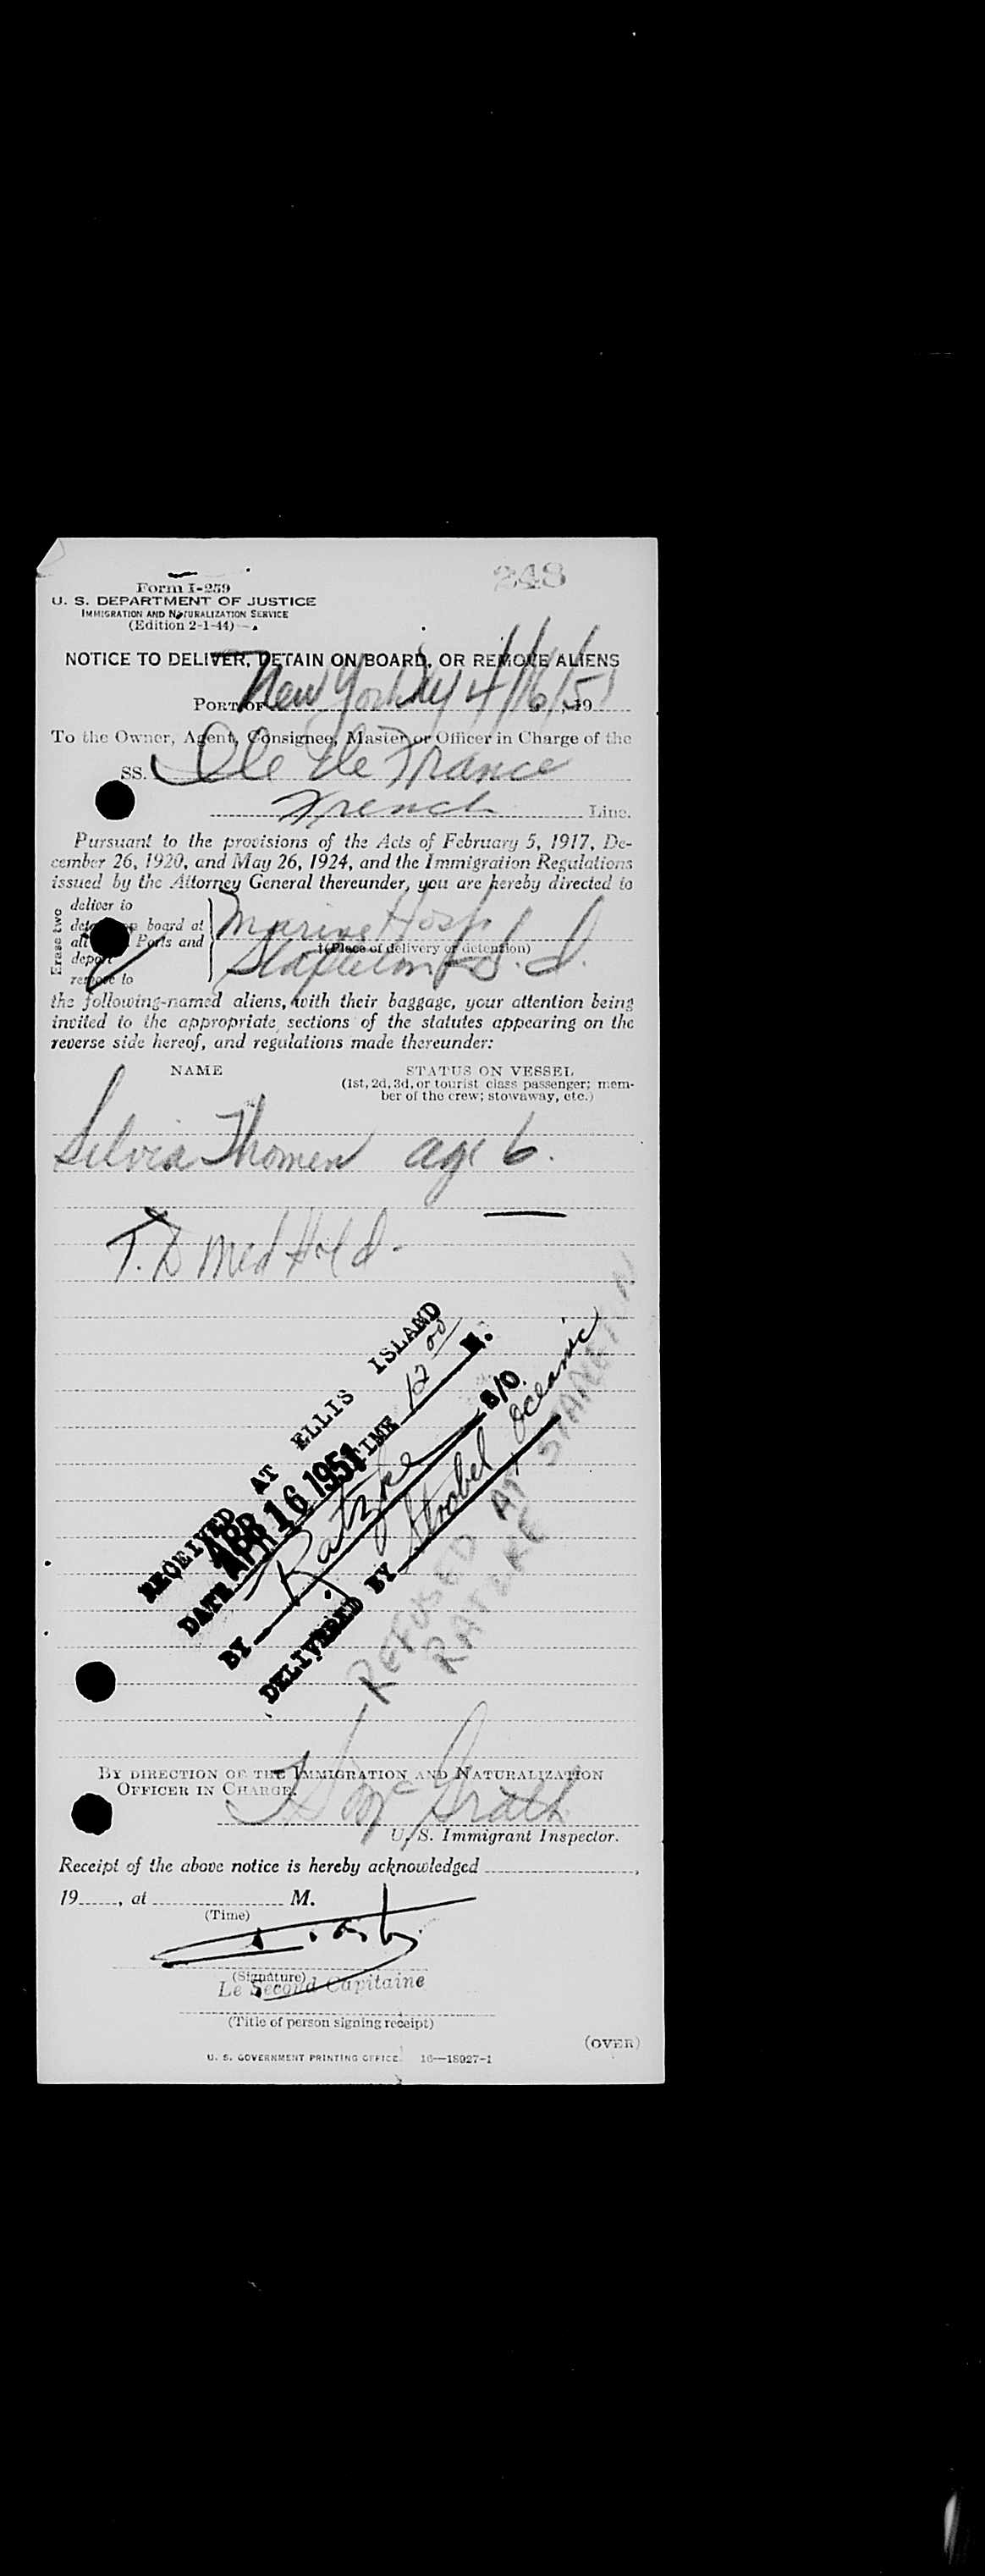 248
Form I-259
U. S. DEPARTMENT OF JUSTICE
IMMIGRATION AND NATURALIZATION SERVICE
(Edition 2-1-44)
NOTICE TO DELIVER, DETAIN ON BOARD, OR REMOVE ALIENS
PORT OF New York NY 4/16/51, 19
To the Owner, Agent, Consignee, Master or Officer in Charge of the
SS. Ile de France
French Line.
Pursuant to the provisions of the Acts of February 5, 1917, De-
cember 26, 1920, and May 26, 1924, and the Immigration Regulations
issued by the Attorney General thereunder, you are hereby directed to
Erase two
deliver to
board at
all Ports and
deport
remove to
Marine Hosp
†(Place of delivery or detention)
Stapleton S. I.
the following-named aliens, with their baggage, your attention being
invited to the appropriate sections of the statutes appearing on the
reverse side hereof, and regulations made thereunder:
NAME
STATUS ON VESSEL
(1st, 2d, 3d, or tourist class passenger; mem-
ber of the crew; stowaway, etc.)
Silvia Thomen age 6.
T. D Med Hold
RECEIVED AT ELLIS ISLAND
DATE APR 16 1951 TIME 12 00 M.
BY Ratzke S/O.
DELIVERED BY Strobel Oceanic
REFUSED AT
BY DIRECTION OF THE IMMIGRATION AND NATURALIZATION
OFFICER IN CHARGE.
McGrath
U. S. Immigrant Inspector.
Receipt of the above notice is hereby acknowledged ,
19 , at M.
(Time)
(Signature)
Le Second Capitaine
(Title of person signing receipt)
(OVER)
U. S. GOVERNMENT PRINTING OFFICE 16—18927-1